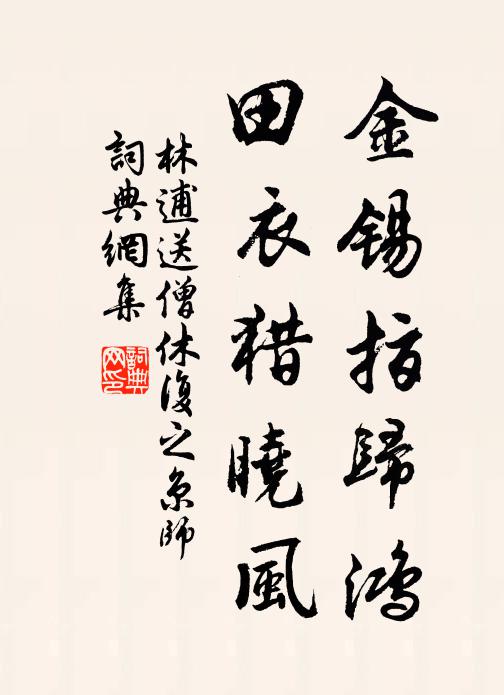 金錫指歸鴻
田衣猎曉風
林逋送僧休復之京師
詞典網集
詞典网印